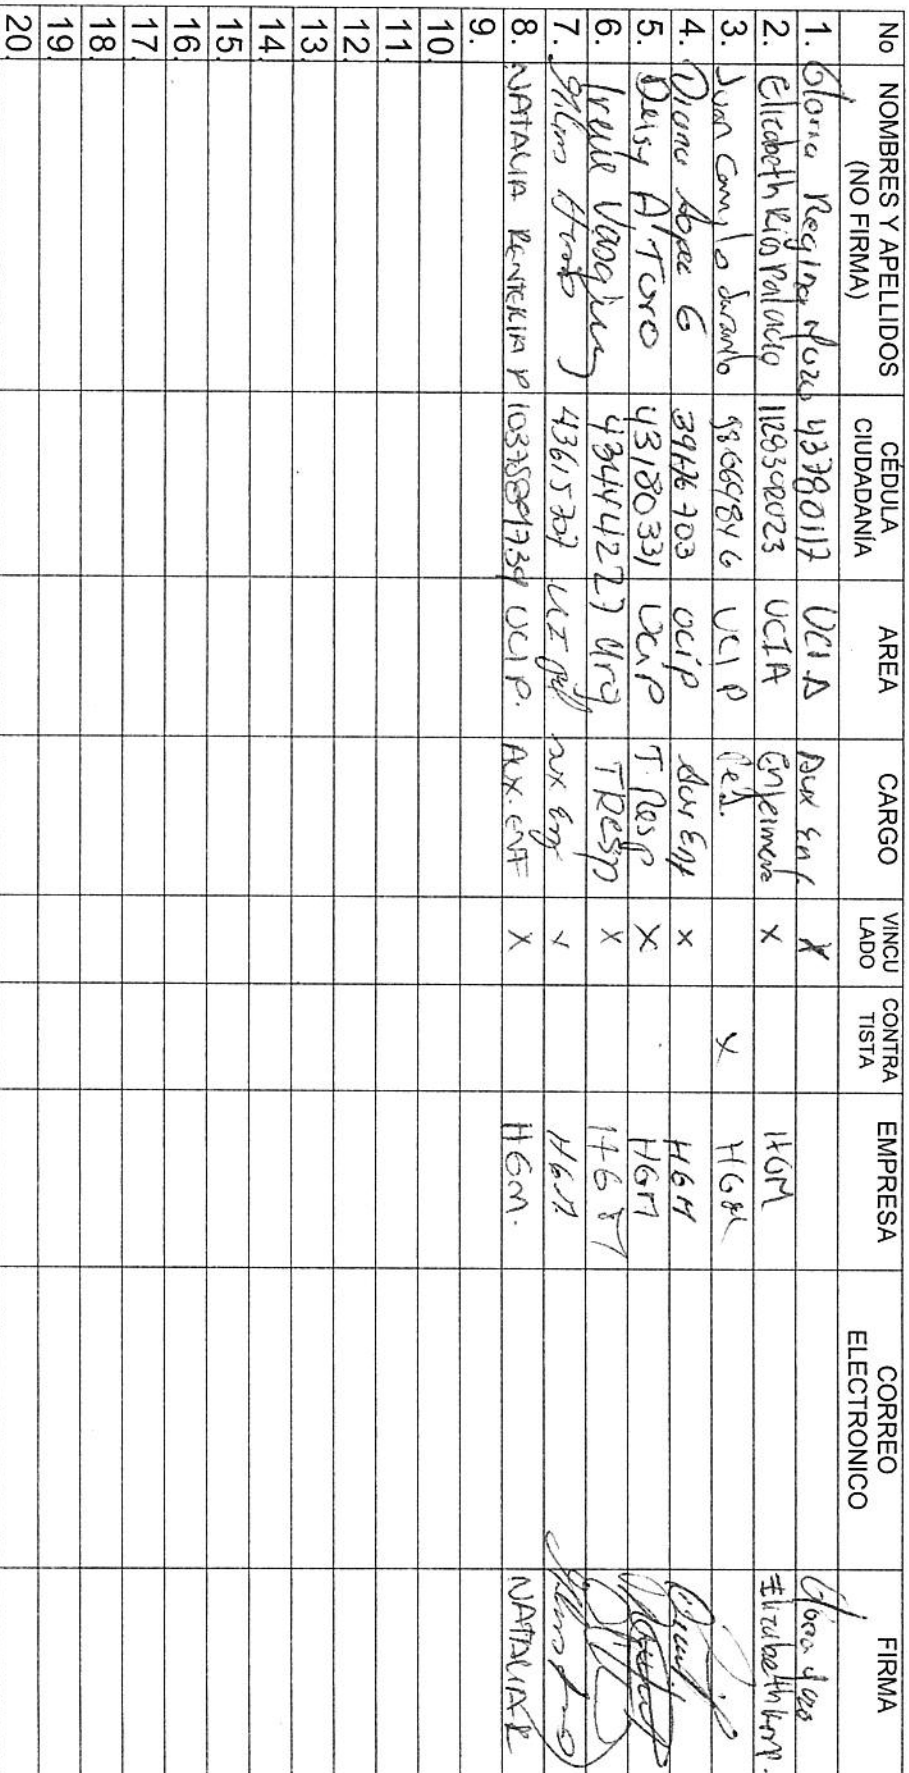 No NOMBRES Y APELLIDOS (NO FIRMA) CÉDULA CIUDADANÍA AREA CARGO VINCU LADO CONTRA TISTA EMPRESA CORREO ELECTRONICO FIRMA
1. Gloria Regina 43780117 UCI.A Aux Enf. X Gloria
2. Elizabeth Rios Palacio 1128392023 UCIA Enfermera X HGM Elizabeth
3. Juan Camilo 98669846 UCI P Ped. X
4. Diana Lopez G 39176703 UCIP Aux Enf X HGM
5. Deisy A Toro 43180331 UCIP T. Resp X HGM
6. Irene 43444227 Urg TResp X HGM
7. 43615707 UCI Aux Enf X HGM
8. NATALIA RENTERIA P UCIP. AUX. ENF X HGM. NATALIA R
9.
10.
11.
12.
13.
14.
15.
16.
17.
18.
19.
20.